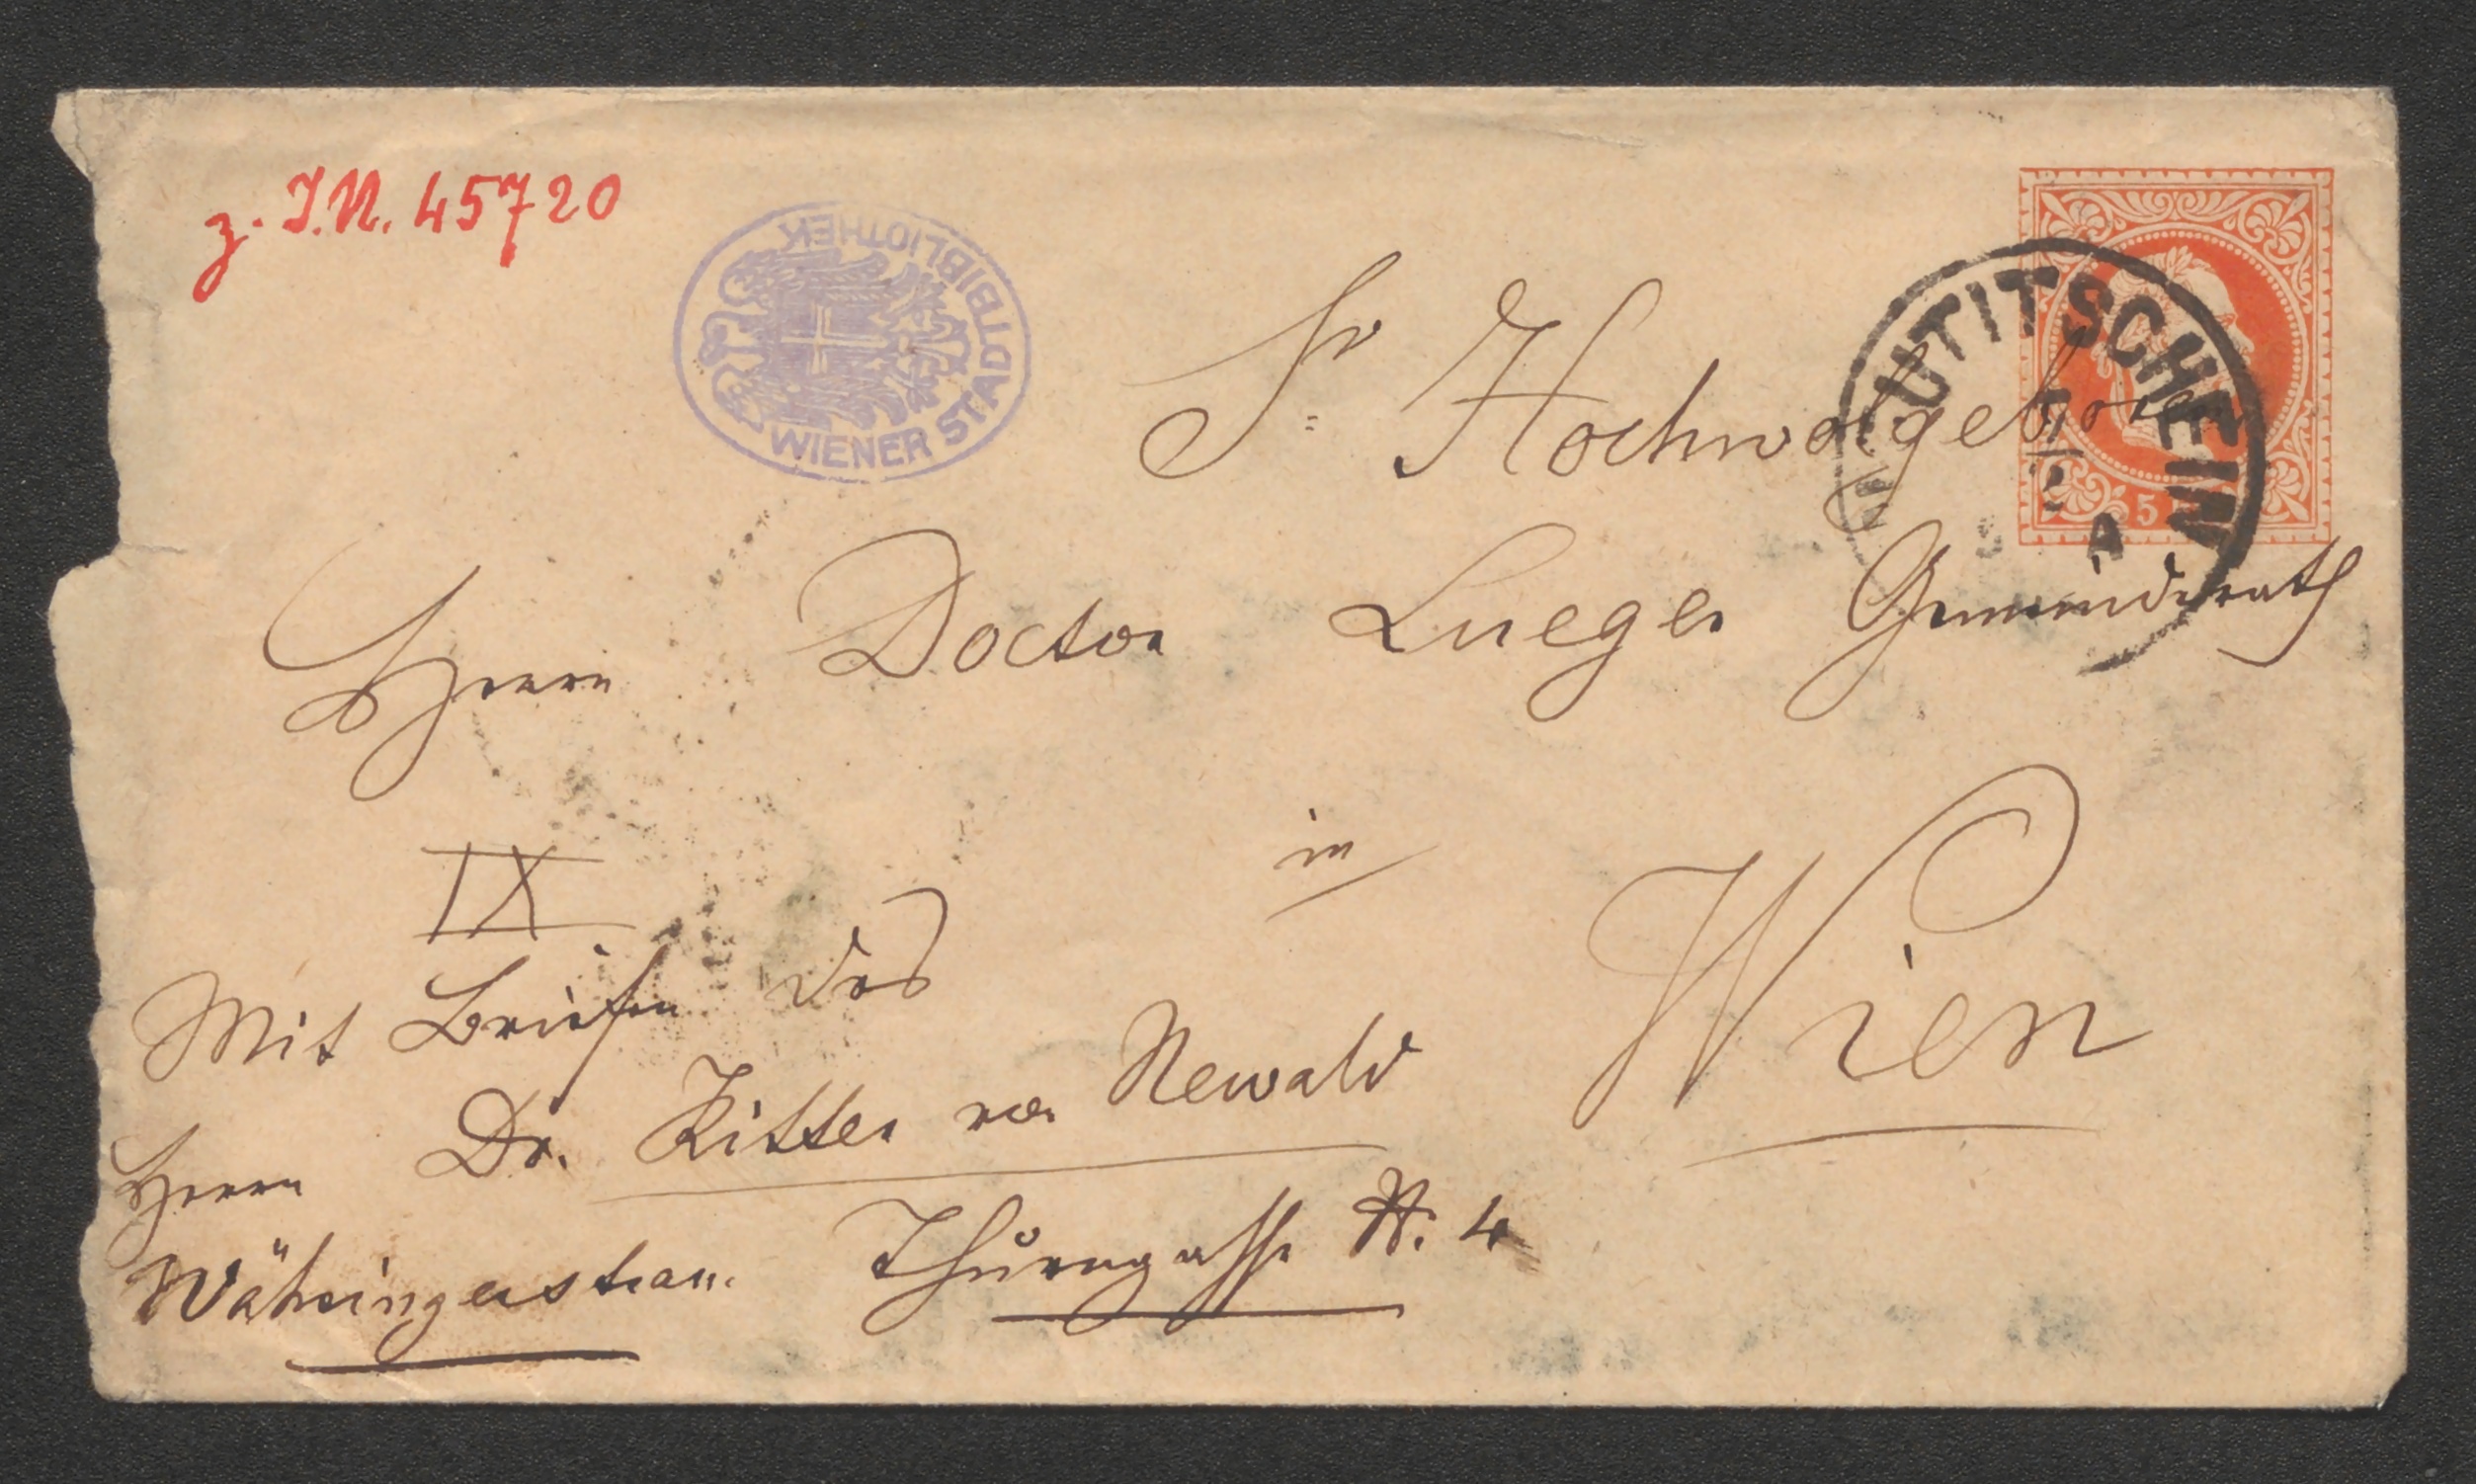 z. I.N. 45720
WIENER STADTBIBLIOTHEK
Sr Hochwolgeboren
NEUTITSCHEIN
5
A
Herrn Doctor Lueger Gemeinderath
in
IX
Wien
Mit Briefen des
Herrn Dr. Ritter von Newald
Währingerstrasse Thurngasse N. 4